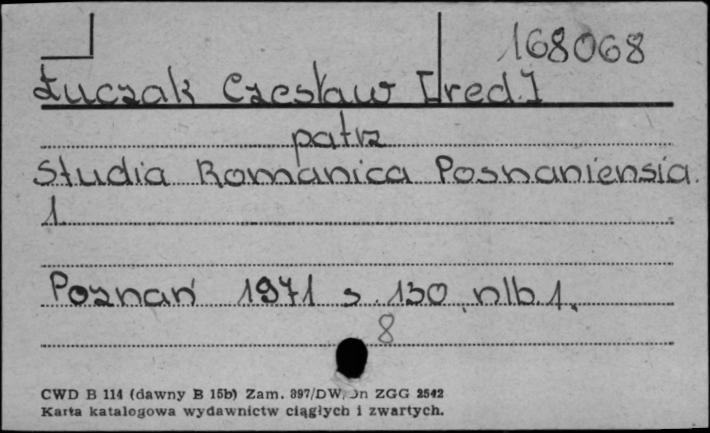 168068
Łuczak Czesław [red.]
patrz
Studia Romanica Posnaniensia.
1.
Poznań 1971 s. 130, nlb. 1.
8
CWD B 114 (dawny B 15b) Zam. 397/DW, ZGG 2542
Karta katalogowa wydawnictw ciągłych i zwartych.